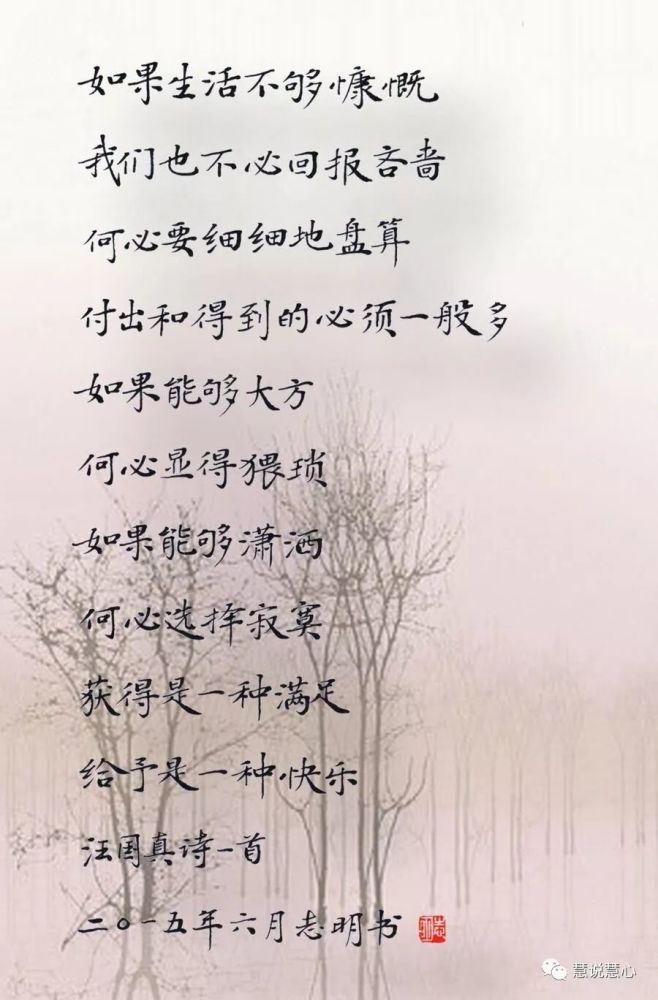 如果生活不够慷慨
我们也不必回报吝啬
何必要细细地盘算
付出和得到的必须一般多
如果能够大方
何必显得猥琐
如果能够潇洒
何必选择寂寞
获得是一种满足
给予是一种快乐
汪国真诗一首
二〇一五年六月志明书
志明
慧说慧心